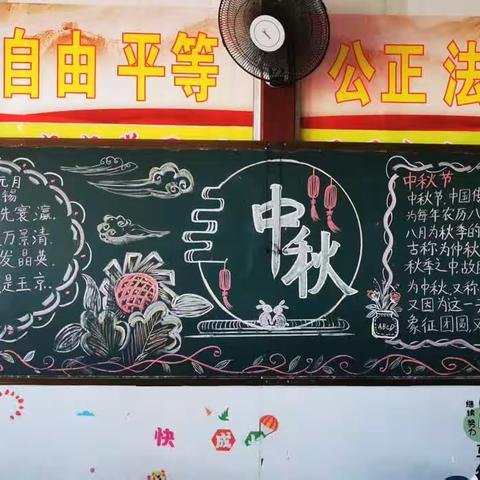 自由 平等 公正 法
元月
锡
先寰瀛.
万景清.
发晶英.
是玉京.
中秋
中秋节
中秋节,中国传
为每年农历八
八月为秋季的
古称为仲秋
秋季之中故
为中秋,又称
又因为这一天
象征团圆,又
ABCD
快
成
继续努力